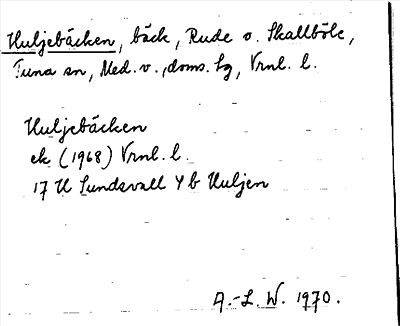 Huljebäcken, bäck, Rude o. Skallböle,
Tuna sn, Med. v., doms. hg, Vrnl. l.
Huljebäcken
ek (1968) Vrnl. l.
17 H Sundsvall 4 b Huljen
A.-L. W. 1970.